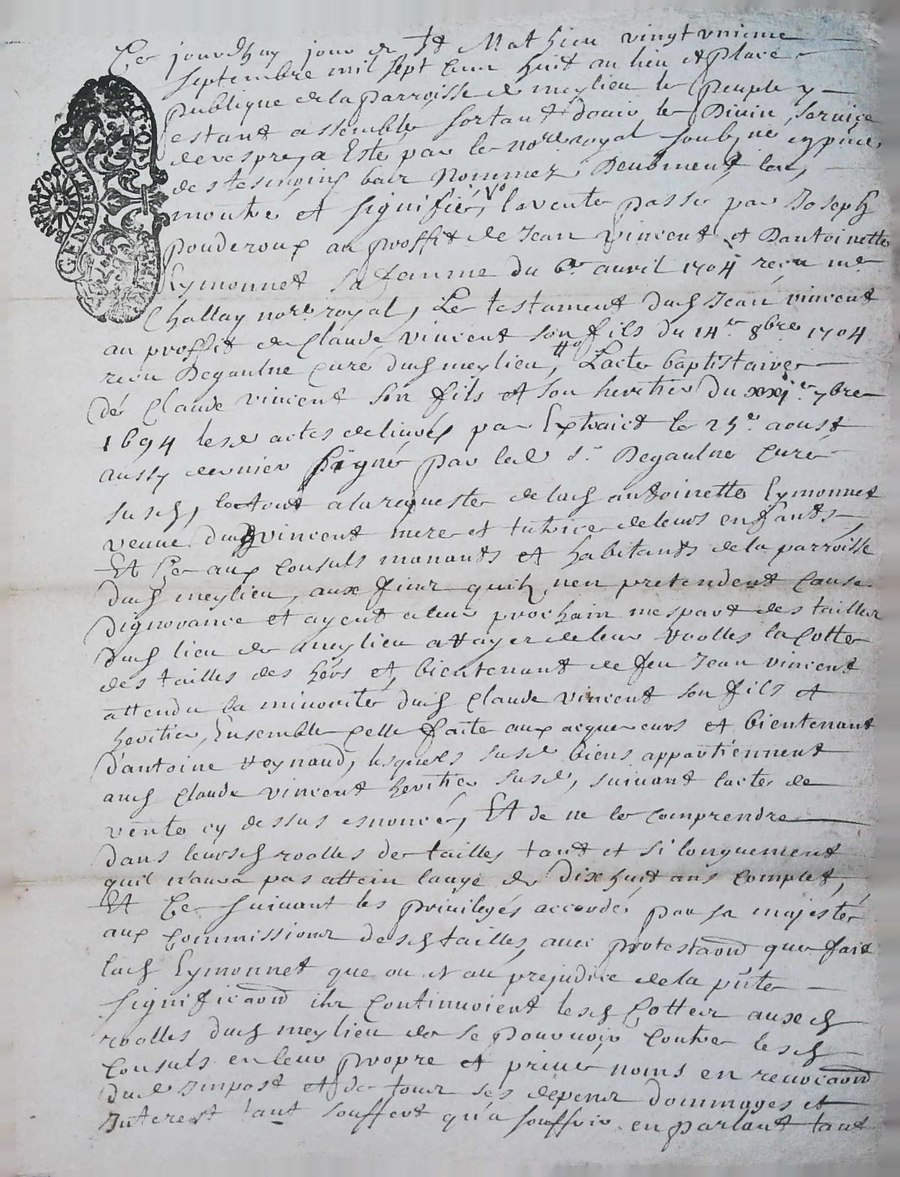 Ce jourdhuy jour de St Mathieu vingtunieme
Septembre mil sept cens huit au lieu et place
publique de la parroisse de meylieu le peuple y
estant assemblé sortant douir le Divin service
de vespres a Esté par le nore royal soubzne et pnce
des tesmoins bas nommez Deubment leu,
montré et signifié, la vente passé par Joseph
pouderoux au proffit de Jean vincent et Dantoinette
Eymonnet sa famme du 6e avril 1704 receu me
Challay nore royal, Le testament dud Jean vincent
au proffit de Claude vincent son fils du 14e 8bre 1704
receu Degaulne curé dud meylieu, Lacte baptistaire
de Claude vincent son fils et son heritier du xxje 7bre
1694 lesd actes delivrés par Extrait le 25e aoust
aussy dernier signé par led Sr Degaulne curé
susd, le tout a la requeste de lad antoinette Eymonnet
veuve dud vincent mere et tutrice de leurs enfants
Et Ce aux Consuls manants et habitants de la parroisse
dud meylieu, aux fins quilz nen pretendent Cause
dignorance et ayent a leur prochain mespart des tailles
dud lieu de meylieu a rayer de leur roolles la Cotte
des tailles des hers et bientenant de feu Jean vincent
attendu la minorité dud Claude vincent son fils et
heritier, Ensemble celle faite aux acquereurs et bientenant
d'antoine Reynaud, lesquels susd biens appartiennent
aud Claude vincent heritier susd, suivant lacte de
vente cy dessus enoncé, Et de ne le comprendre
dans leursd roolles de tailles tant et si longuement
quil n'aura pas attein lauge de Dixhuit ans complet,
Et Ce suivant les privileges accordés par sa majesté
aux Commissions desd tailles, avec protestaon que fait
lad Eymonnet que ou et au prejudice de la pnte
significaon ilz Continuoient lesd Cottes auxd
roolles dud meylieu de se pourvoir Contre lesd
Consuls en leur propre et privé noms en revocaon
dud Impost et de tous ses depens dommages et
Interest tant souffert qu'a souffrir en parlant tant